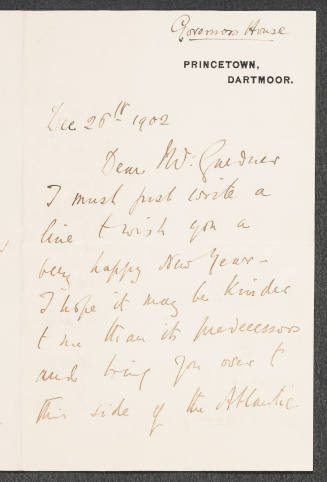 Governors House
PRINCETOWN,
DARTMOOR.
Dec 26th 1902
Dear Mr. Gardner
I must just write a
line to wish you a
very happy New Year -
I hope it may be kinder
to me than its predecessors
and bring you over to
this side of the Atlantic